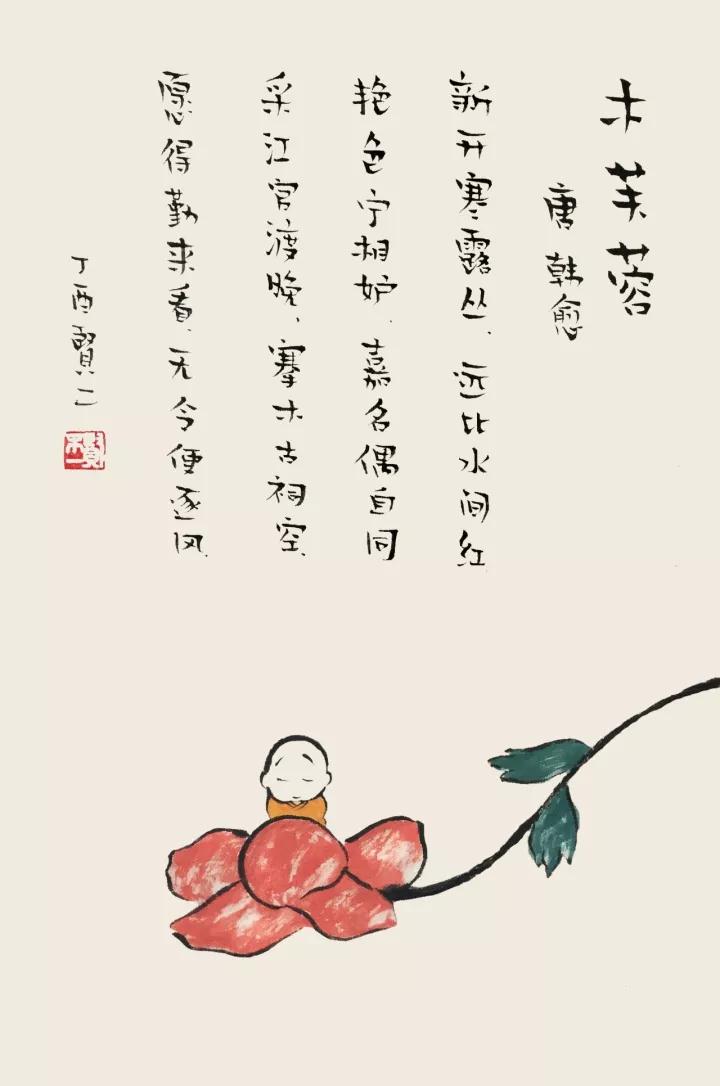 木芙蓉
唐 韩愈
新开寒露丛、远比水间红
艳色宁相妒、嘉名偶自同
采江官渡晚、搴木古祠空、
愿得勤来看、无令便逐风、
丁酉賢二